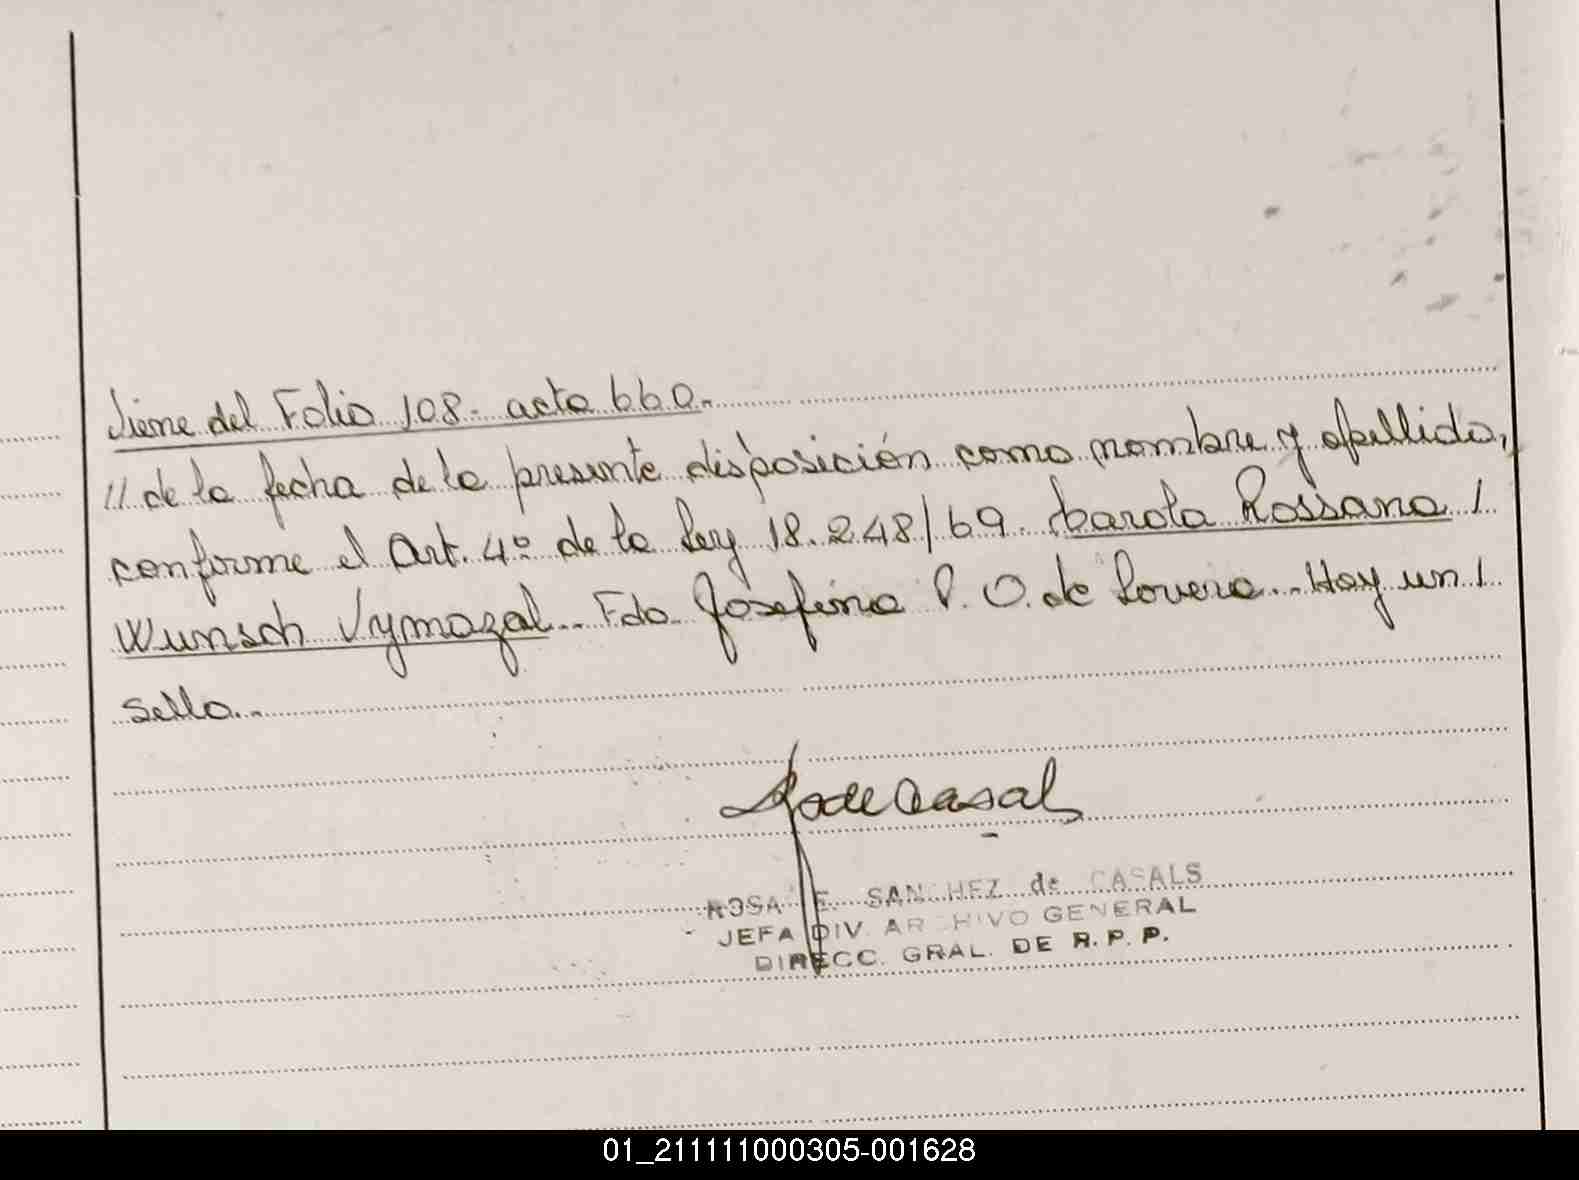 Viene del Folio 108. acta 660.
// de la fecha de la presente disposición como nombre y apellido,
conforme el Art. 4º de la Ley 18.248/69. Carola Rossana /
Wunsch Vymazal.. Fdo. Josefina P. O. de Lovera.. Hay un /
sello..
R de Casal
ROSA E. SANCHEZ de CASALS
JEFA DIV. ARCHIVO GENERAL
DIRECC. GRAL. DE R.P.P.
01_211111000305-001628